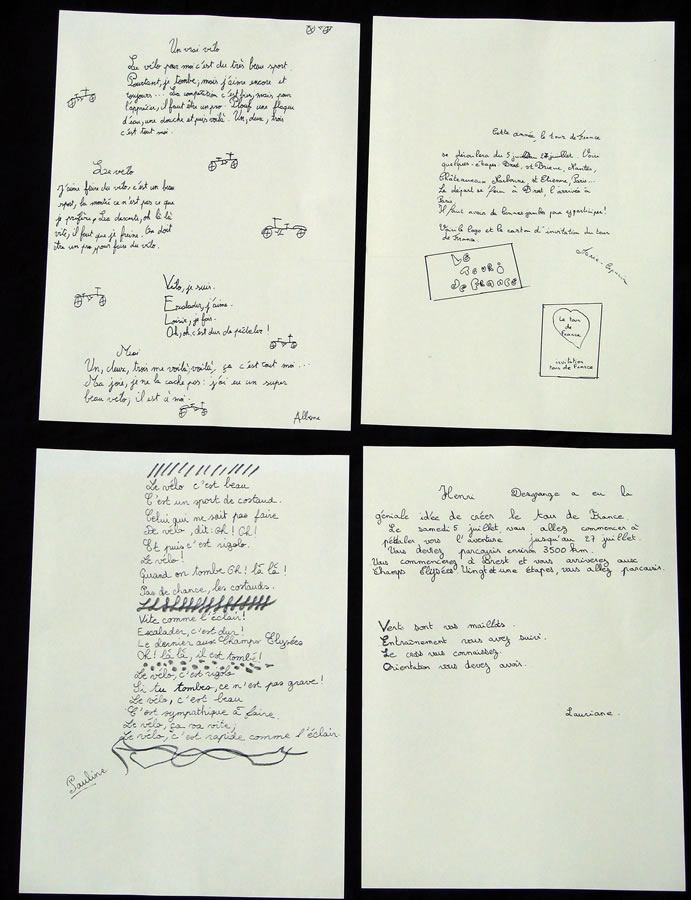 Un vrai vélo
Le vélo pour moi c'est du très beau sport
Pourtant, je tombe, mais j'aime encore et
toujours... La compétition c'est bien, mais pour
l'apprécier, il faut être un pro. Plouf une flaque
d'eau, une douche et puis voilà. Un, deux, trois
c'est tout moi.
Le vélo
J'aime faire du vélo, c'est un beau
sport, la montée ce n'est pas ce que
je préfère, Les descente, oh là là
vite, il faut que je freine. On doit
être un pro, pour faire du vélo.
Vélo, je suis.
Escalader, j'aime.
Loisir, je fais.
Oh, oh, c'est dur de pédaler !
Moi
Un, deux, trois me voilà, voilà, ça c'est tout moi...
Ma joie, je ne la cache pas : j'ai eu un super
beau vélo, il est à moi.
Albane
Cette année, le tour de France
se déroulera du 5 juillet 27 juillet. Voici
quelques étapes: Brest, St Brieuc, Nantes,
Châteauroux Narbonne, St Etienne, Paris...
Le départ se fera à Brest l'arrivée à
Paris
Il faut avoir de bonnes jambes pour y participer!
Voici le logo et le carton d'invitation du tour
de France.
LE
TOUR
de FRANCE
Le tour
de
France
invitation
tour de France
Le vélo c'est beau
C'est un sport de costaud.
Celui qui ne sait pas faire
De vélo, dit: Oh ! Oh!
Et puis c'est rigolo.
Le vélo !
Quand on tombe Oh ! là là !
Pas de chance, les costauds.
Vite comme l'éclair!
Escalader, c'est dur!
Le dernier aux Champs Elysées
Oh! là là, il est tombé!
Le vélo, c'est rigolo
Si tu tombes, ce n'est pas grave!
Le vélo, c'est beau
C'est sympathique à faire.
Le vélo, ça va vite,
Le vélo, c'est rapide comme l'éclair.
Pauline
Henri Desgrange a eu la
géniale idée de créer le tour de France.
Le samedi 5 juillet, vous allez commencer à
pédaler vers l'aventure jusqu'au 27 juillet.
Vous devrez parcourir environ 3500 km.
Vous commencerez à Brest et vous arriverez aux
Champs Elysées. Vingt et une étapes, vous allez parcourir.
Verts sont vos maillots.
Entraînement vous avez suivi.
Le cross vous connaissez.
Orientation vous devez avoir.
Lauriane.